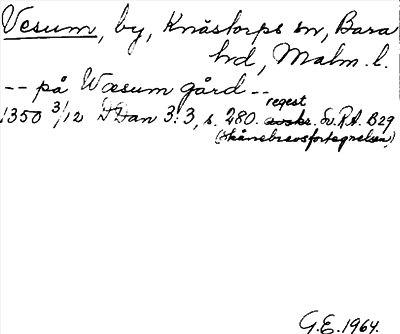 Vesum, by, Knästorps sn, Bara
hd, Malm. l.
-- på Wæsum gård --
1350 3/12 DDan 3:3, s. 280. regest Sv. R.A. B29
(Skånebrevsfortegnelsen)
G.E. 1964.